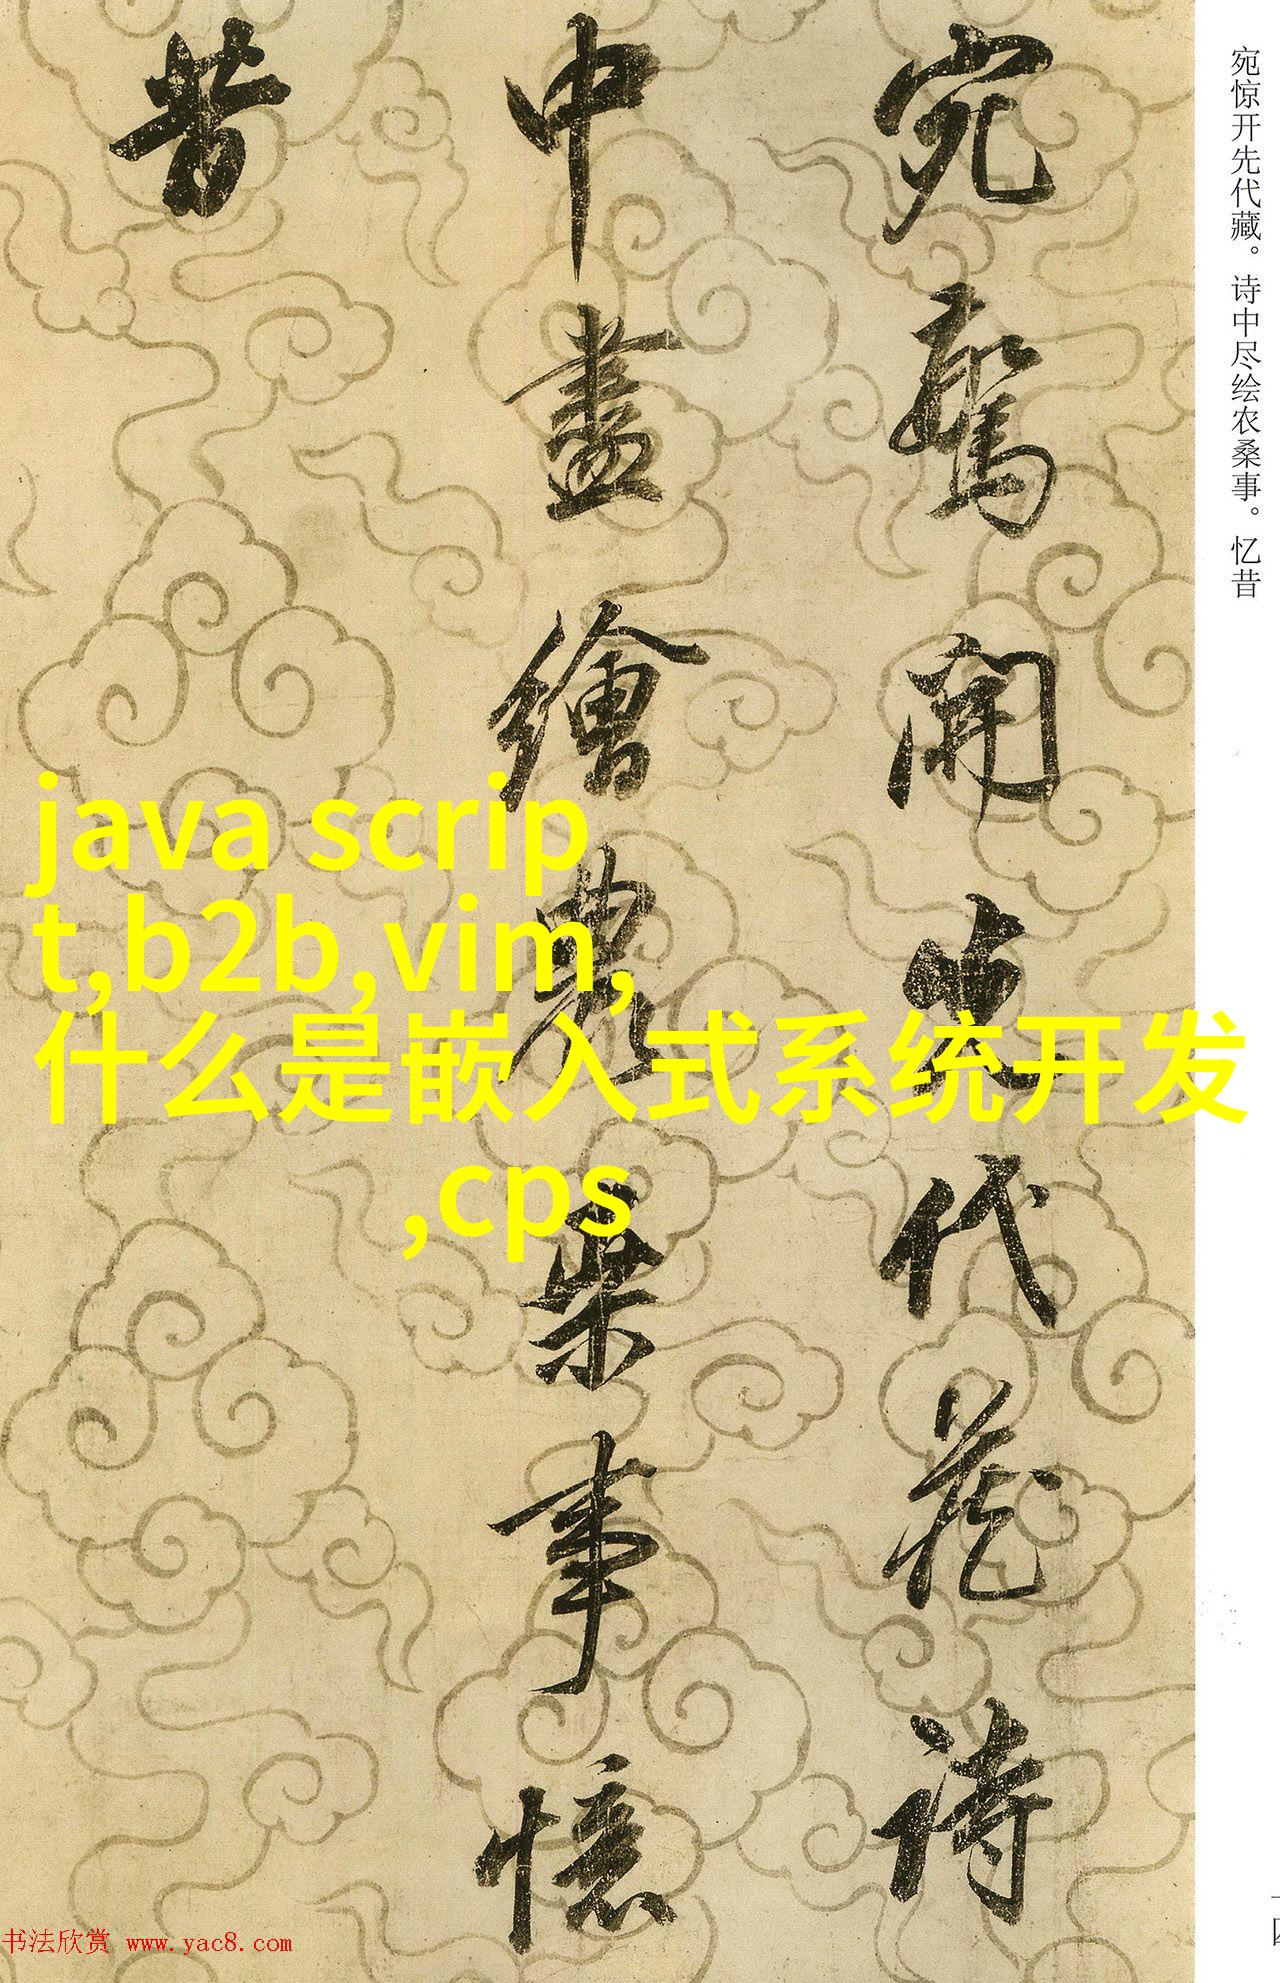 宛驚開先代藏詩
中盡繪農桑事憶
昔
宛惊开先代藏。诗中尽绘农桑事。忆昔
java scrip
t,b2b,vim,
什么是嵌入式系统开发
,cps
书法欣赏 www.yac8.com